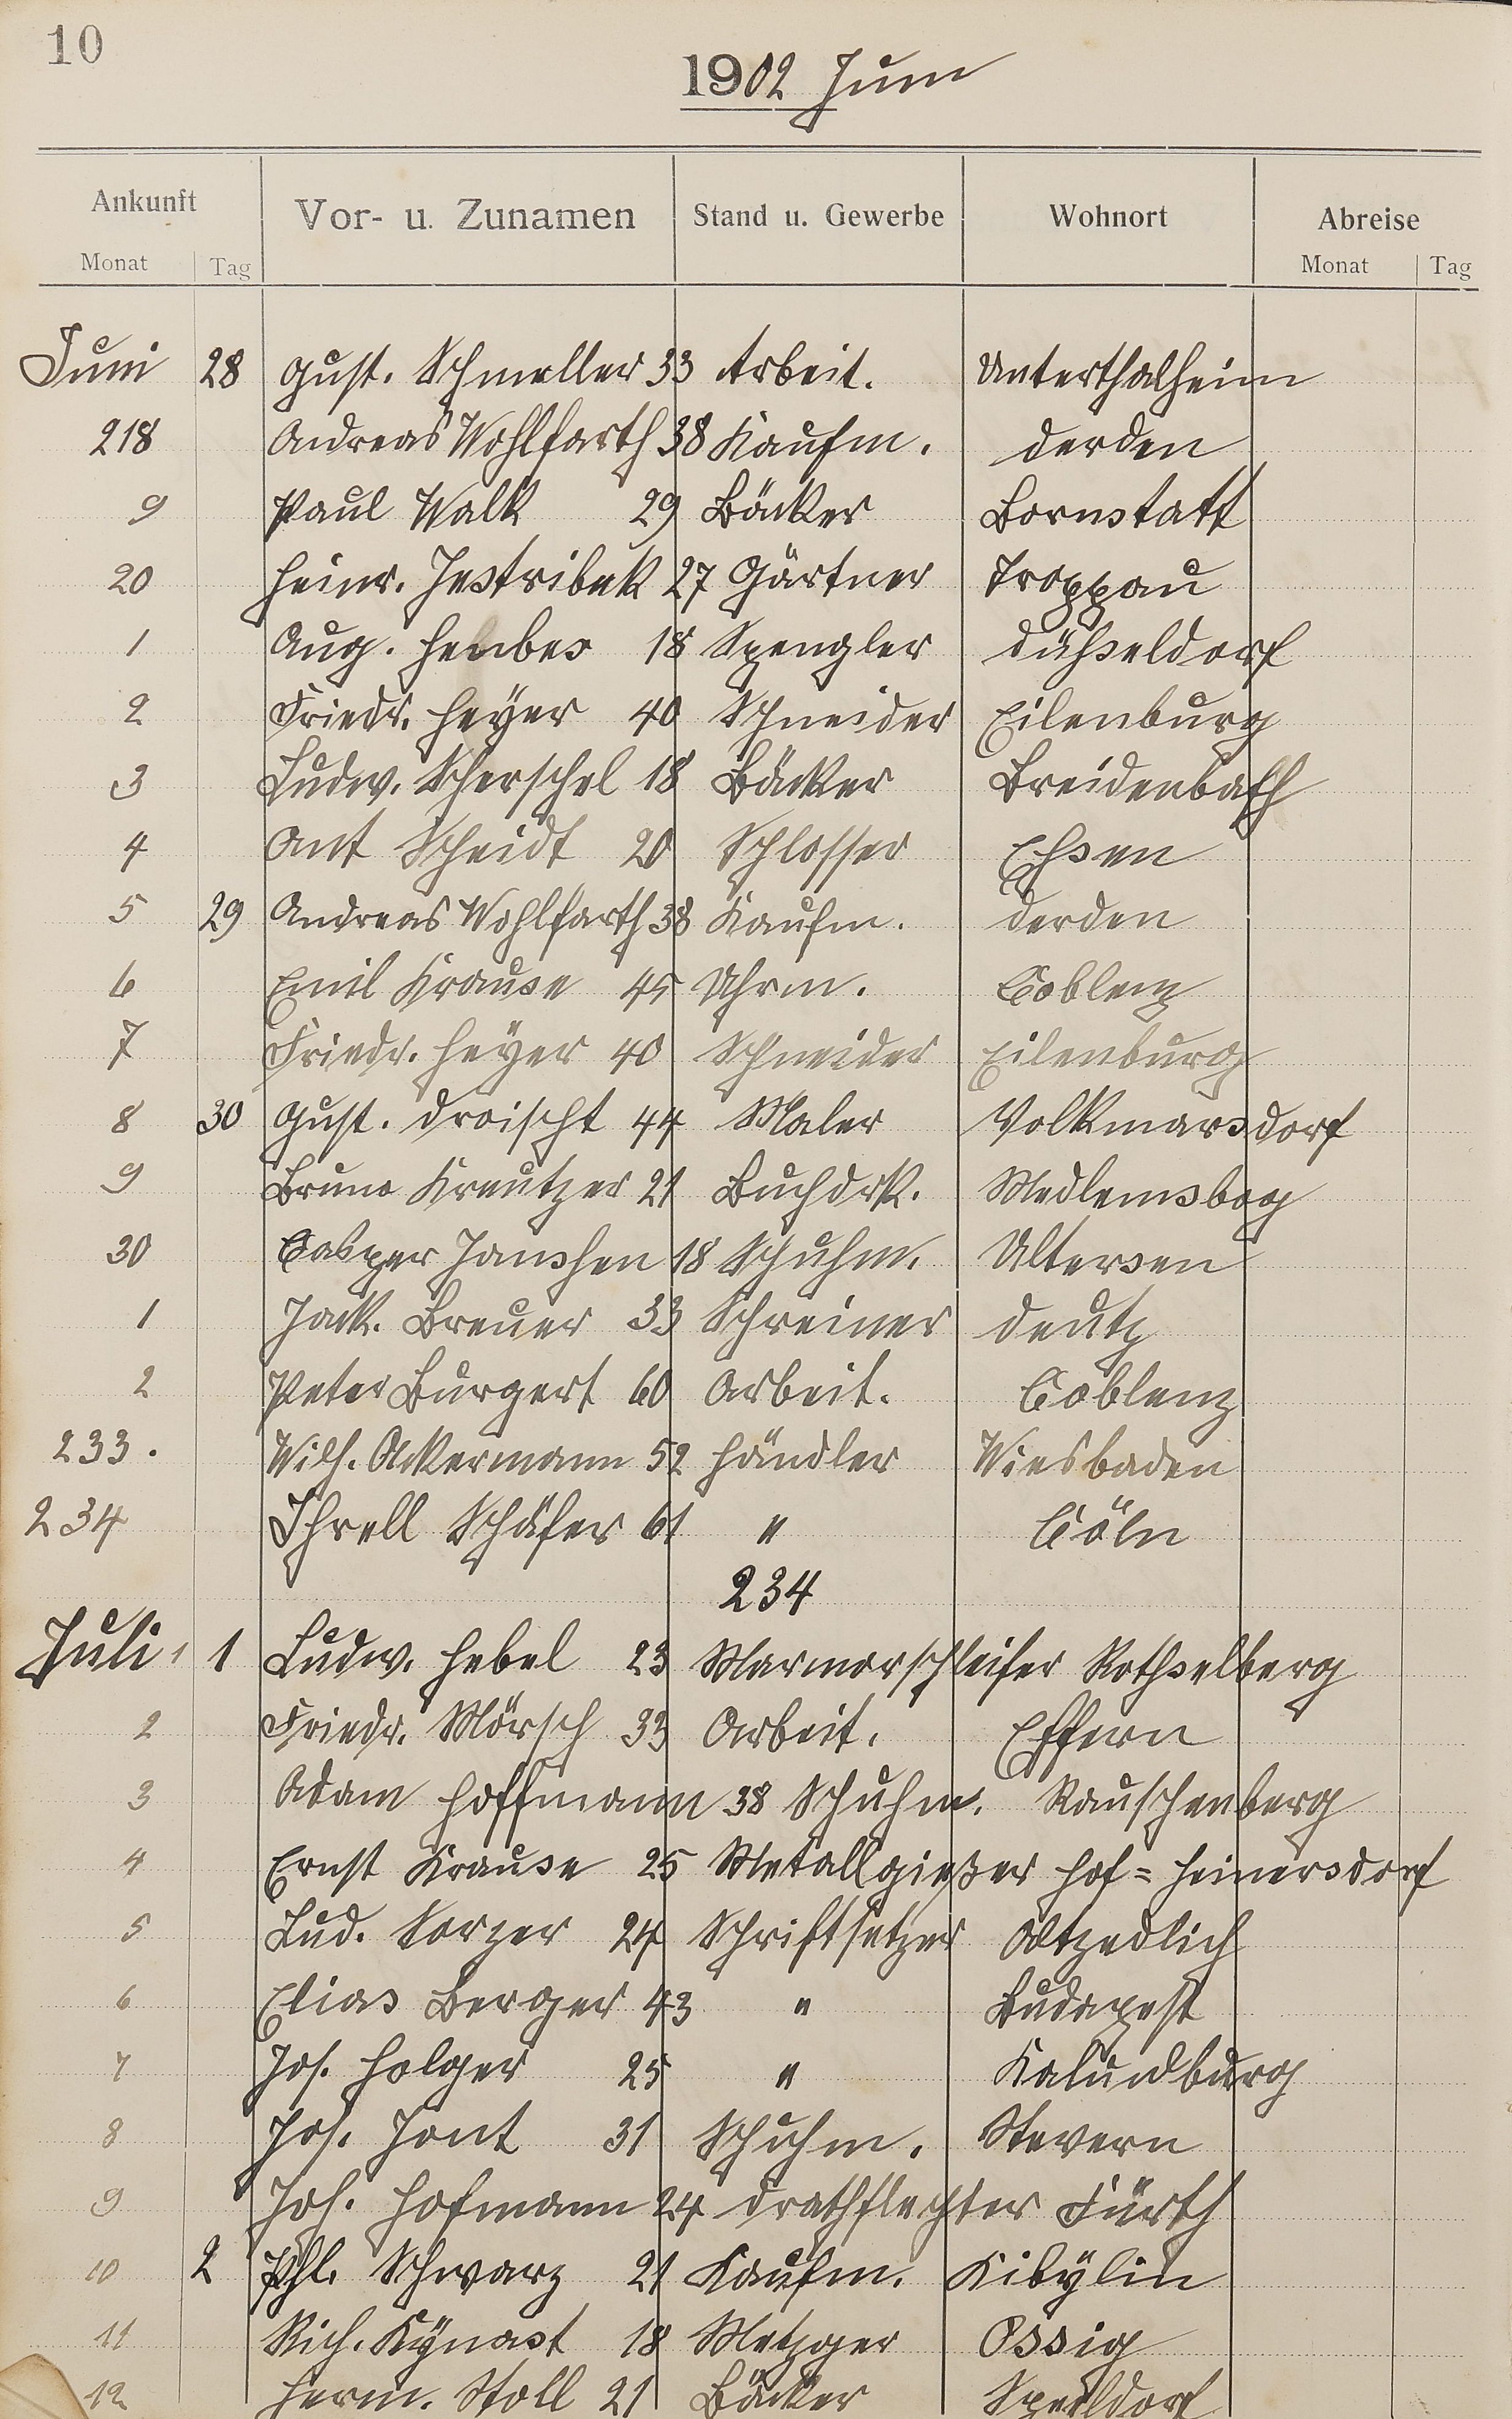 10
1902 Juni
Ankunft Vor- u. Zunamen Stand u. Gewerbe Wohnort Abreise
Monat Tag Monat Tag
Juni 28 Gust. Schmeller 33 Arbeit. Unterthalheim
218 Andreas Wohlfarth 38 Kaufm. Derden
9 Paul Walk 29 Bäcker Bornstatt
20 Heinr. Jestribek 27 Gärtner Troppau
1 Aug. 18 Spengler Düßseldorf
2 Friedr. Heÿer 40 Schneider Eilenburg
3 Ludw. Scherschel 18 Bäcker Breidenbach
4 Ant Scheidt 20 Schlosser Eßsen
5 29 Andreas Wohlfarth 38 Kaufm. Derden
6 Emil Krause 45 Uhrm. Coblenz
7 Friedr. Heÿer 40 Schneider Eilenburg
8 30 Gust. Droischt 44 Maler Volkmarsdorf
9 Bruno Kreutzer 21 Buchdrk.
30 Casper Janshen 18 Schuhm. Ultersen
1 Jack. Breuer 33 Schreiner Deutz
2 Peter Burgert 60 Arbeit. Coblenz
233. Wilh. Ackermann 52 Händler Wiesbaden
234 Schäfer 61 " Cöln
234
Juli 1 Ludw. Hebel 23 Marmorschleifer Rothselberg
2 Friedr. Mörsch 33 Arbeit. Effern
3 Adam Hoffmann 38 Schuhm. Rauschenberg
4 Ernst Krause 25 Metallgießer Hof= Heinersdorf
5 Lud. Sorger 24 Schriftsetzer Altzedlich
6 Elias Berger 43 " Budapest
7 Jos. Holger 25 " Kalundburg
8 Jos. Jont 31 Schuhm. Stevern
9 Joh. Hofmann 24 Drathflechter Fürth
10 2 Phl. Schwarz 21 Kaufm. Kibÿlin
11 Rich. Kÿnast 18 Metzger Ossig
12 Herm. Stoll 21 Bäcker Speldorf